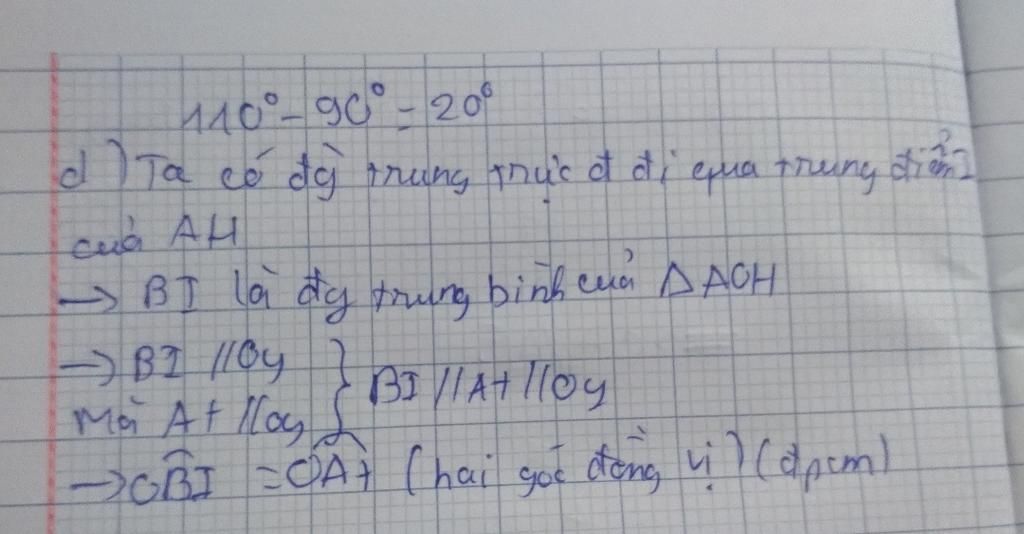 110° - 90° = 20°
d) Ta có đg trung trực d đi qua trung điểm I
của AH
→ BI là đg trung bình của ΔAOH
→ BI // Oy } BI // At // Oy
Mà At // Oy
→ OBI = OAt (hai góc đồng vị) (đpcm)